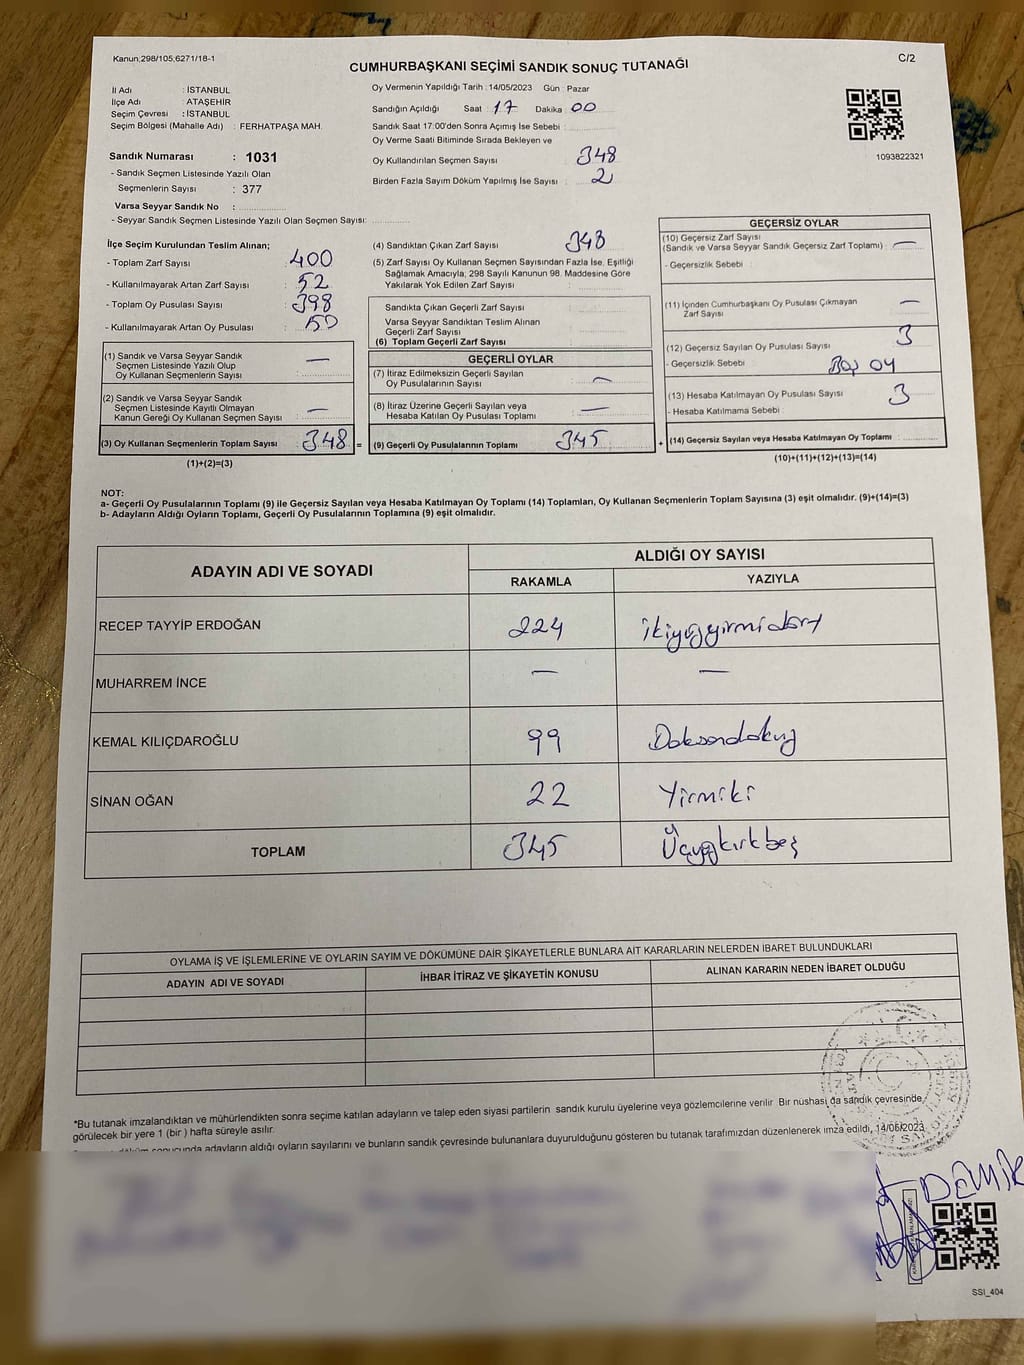 Kanun;298/105,6271/18-1
C/2
CUMHURBAŞKANI SEÇİMİ SANDIK SONUÇ TUTANAĞI
İl Adı : İSTANBUL
İlçe Adı : ATAŞEHİR
Seçim Çevresi : İSTANBUL
Seçim Bölgesi (Mahalle Adı) : FERHATPAŞA MAH.
Sandık Numarası : 1031
- Sandık Seçmen Listesinde Yazılı Olan
Seçmenlerin Sayısı : 377
Varsa Seyyar Sandık No :
- Seyyar Sandık Seçmen Listesinde Yazılı Olan Seçmen Sayısı:
Oy Vermenin Yapıldığı Tarih : 14/05/2023 Gün : Pazar
Sandığın Açıldığı Saat : 17 Dakika : 00
Sandık Saat 17:00'den Sonra Açımış İse Sebebi :
Oy Verme Saati Bitiminde Sırada Bekleyen ve
Oy Kullandırılan Seçmen Sayısı : 348
Birden Fazla Sayım Döküm Yapılmış İse Sayısı : 2
1093822321
İlçe Seçim Kurulundan Teslim Alınan;
- Toplam Zarf Sayısı : 400
- Kullanılmayarak Artan Zarf Sayısı : 52
- Toplam Oy Pusulası Sayısı : 398
- Kullanılmayarak Artan Oy Pusulası : 50
(1) Sandık ve Varsa Seyyar Sandık
Seçmen Listesinde Yazılı Olup
Oy Kullanan Seçmenlerin Sayısı : —
(2) Sandık ve Varsa Seyyar Sandık
Seçmen Listesinde Kayıtlı Olmayan
Kanun Gereği Oy Kullanan Seçmen Sayısı : —
(3) Oy Kullanan Seçmenlerin Toplam Sayısı : 348 =
(1)+(2)=(3)
(4) Sandıktan Çıkan Zarf Sayısı : 348
(5) Zarf Sayısı Oy Kullanan Seçmen Sayısından Fazla İse, Eşitliği
Sağlamak Amacıyla; 298 Sayılı Kanunun 98. Maddesine Göre
Yakılarak Yok Edilen Zarf Sayısı :
Sandıkta Çıkan Geçerli Zarf Sayısı :
Varsa Seyyar Sandıktan Teslim Alınan
Geçerli Zarf Sayısı :
(6) Toplam Geçerli Zarf Sayısı :
GEÇERLİ OYLAR
(7) İtiraz Edilmeksizin Geçerli Sayılan
Oy Pusulalarının Sayısı : —
(8) İtiraz Üzerine Geçerli Sayılan veya
Hesaba Katılan Oy Pusulası Toplamı : —
(9) Geçerli Oy Pusulalarının Toplamı : 345 +
GEÇERSİZ OYLAR
(10) Geçersiz Zarf Sayısı
(Sandık ve Varsa Seyyar Sandık Geçersiz Zarf Toplamı) : —
- Geçersizlik Sebebi :
(11) İçinden Cumhurbaşkanı Oy Pusulası Çıkmayan
Zarf Sayısı : —
(12) Geçersiz Sayılan Oy Pusulası Sayısı : 3
- Geçersizlik Sebebi : Boş oy
(13) Hesaba Katılmayan Oy Pusulası Sayısı : 3
- Hesaba Katılmama Sebebi :
(14) Geçersiz Sayılan veya Hesaba Katılmayan Oy Toplamı :
(10)+(11)+(12)+(13)=(14)
NOT:
a- Geçerli Oy Pusulalarının Toplamı (9) ile Geçersiz Sayılan veya Hesaba Katılmayan Oy Toplamı (14) Toplamları, Oy Kullanan Seçmenlerin Toplam Sayısına (3) eşit olmalıdır. (9)+(14)=(3)
b- Adayların Aldığı Oyların Toplamı, Geçerli Oy Pusulalarının Toplamına (9) eşit olmalıdır.
ADAYIN ADI VE SOYADI
ALDIĞI OY SAYISI
RAKAMLA YAZIYLA
RECEP TAYYİP ERDOĞAN 224 ikiyüzyirmidört
MUHARREM İNCE — —
KEMAL KILIÇDAROĞLU 99 Doksandokuz
SİNAN OĞAN 22 Yirmiki
TOPLAM 345 Üçyüzkırkbeş
OYLAMA İŞ VE İŞLEMLERİNE VE OYLARIN SAYIM VE DÖKÜMÜNE DAİR ŞİKAYETLERLE BUNLARA AİT KARARLARIN NELERDEN İBARET BULUNDUKLARI
ADAYIN ADI VE SOYADI İHBAR İTİRAZ VE ŞİKAYETİN KONUSU ALINAN KARARIN NEDEN İBARET OLDUĞU
*Bu tutanak imzalandıktan ve mühürlendikten sonra seçime katılan adayların ve talep eden siyasi partilerin sandık kurulu üyelerine veya gözlemcilerine verilir Bir nüshası da sandık çevresinde,
görülecek bir yere 1 (bir) hafta süreyle asılır.
sonucunda adayların aldığı oyların sayılarını ve bunların sandık çevresinde bulunanlara duyurulduğunu gösteren bu tutanak tarafımızdan düzenlenerek imza edildi, 14/05/2023
DEMİR
SSI_404